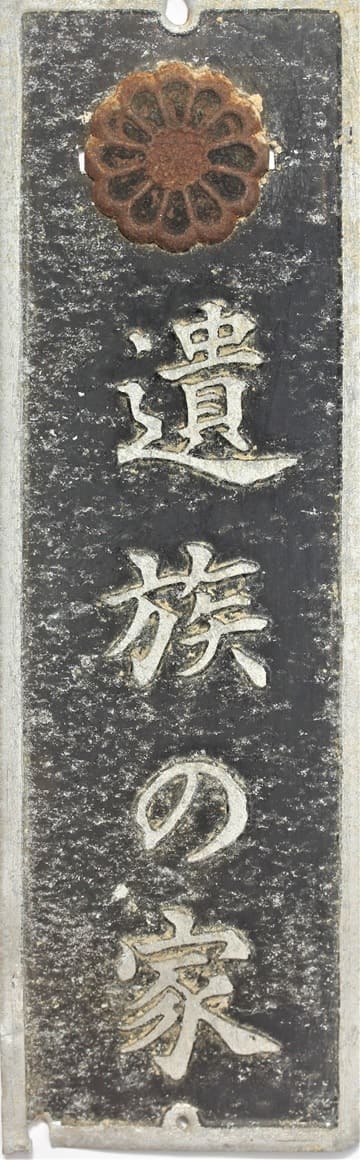 遺族の家